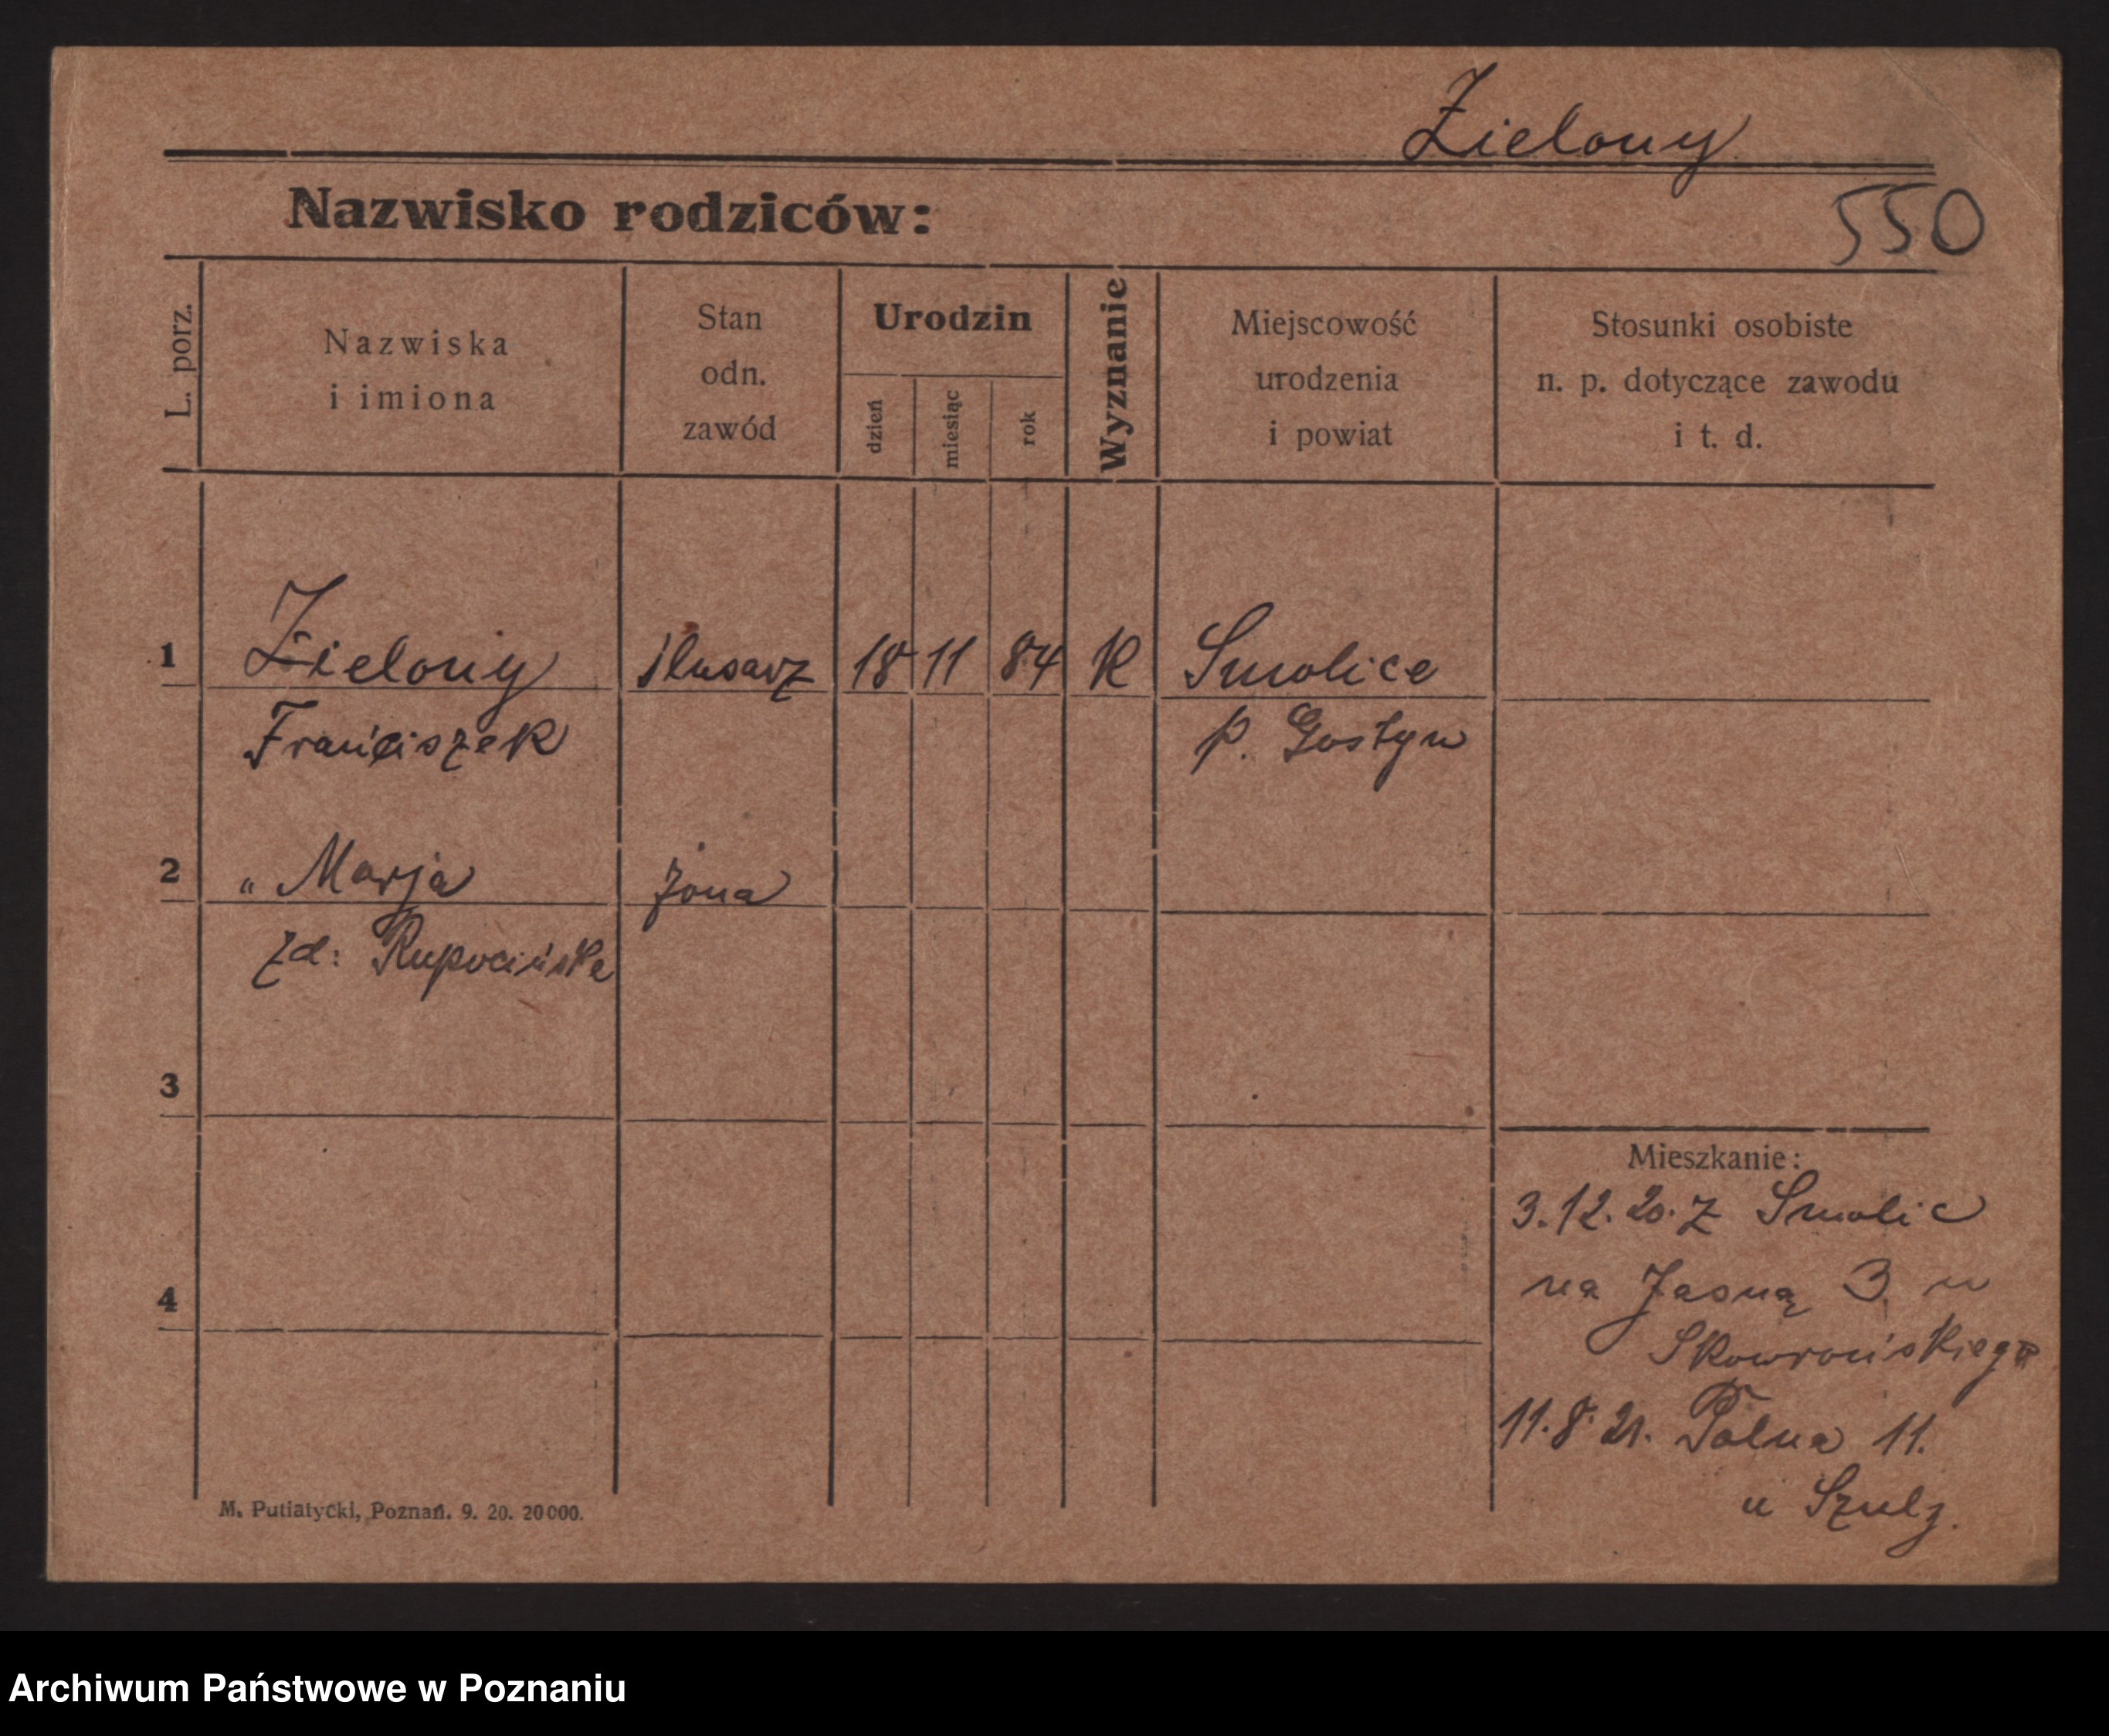 Zielony
550
Nazwisko rodziców:
L. porz.
Nazwiska
i imiona
Stan
odn.
zawód
Urodzin
dzień
miesiąc
rok
Wyznanie
Miejscowość
urodzenia
i powiat
Stosunki osobiste
n. p. dotyczące zawodu
i t. d.
1 Zielony ślusarz 18 11 84 K Smolice
Franciszek p. Gostyn
2 " Marja żona
zd: Rupocińska
3
Mieszkanie:
3.12.20. z Smolic
na Jasną 3 u
4
Skowrońskiego
11.8.21. Polna 11.
u Szulz.
M. Putiatycki, Poznań. 9. 20. 20000.
Archiwum Państwowe w Poznaniu